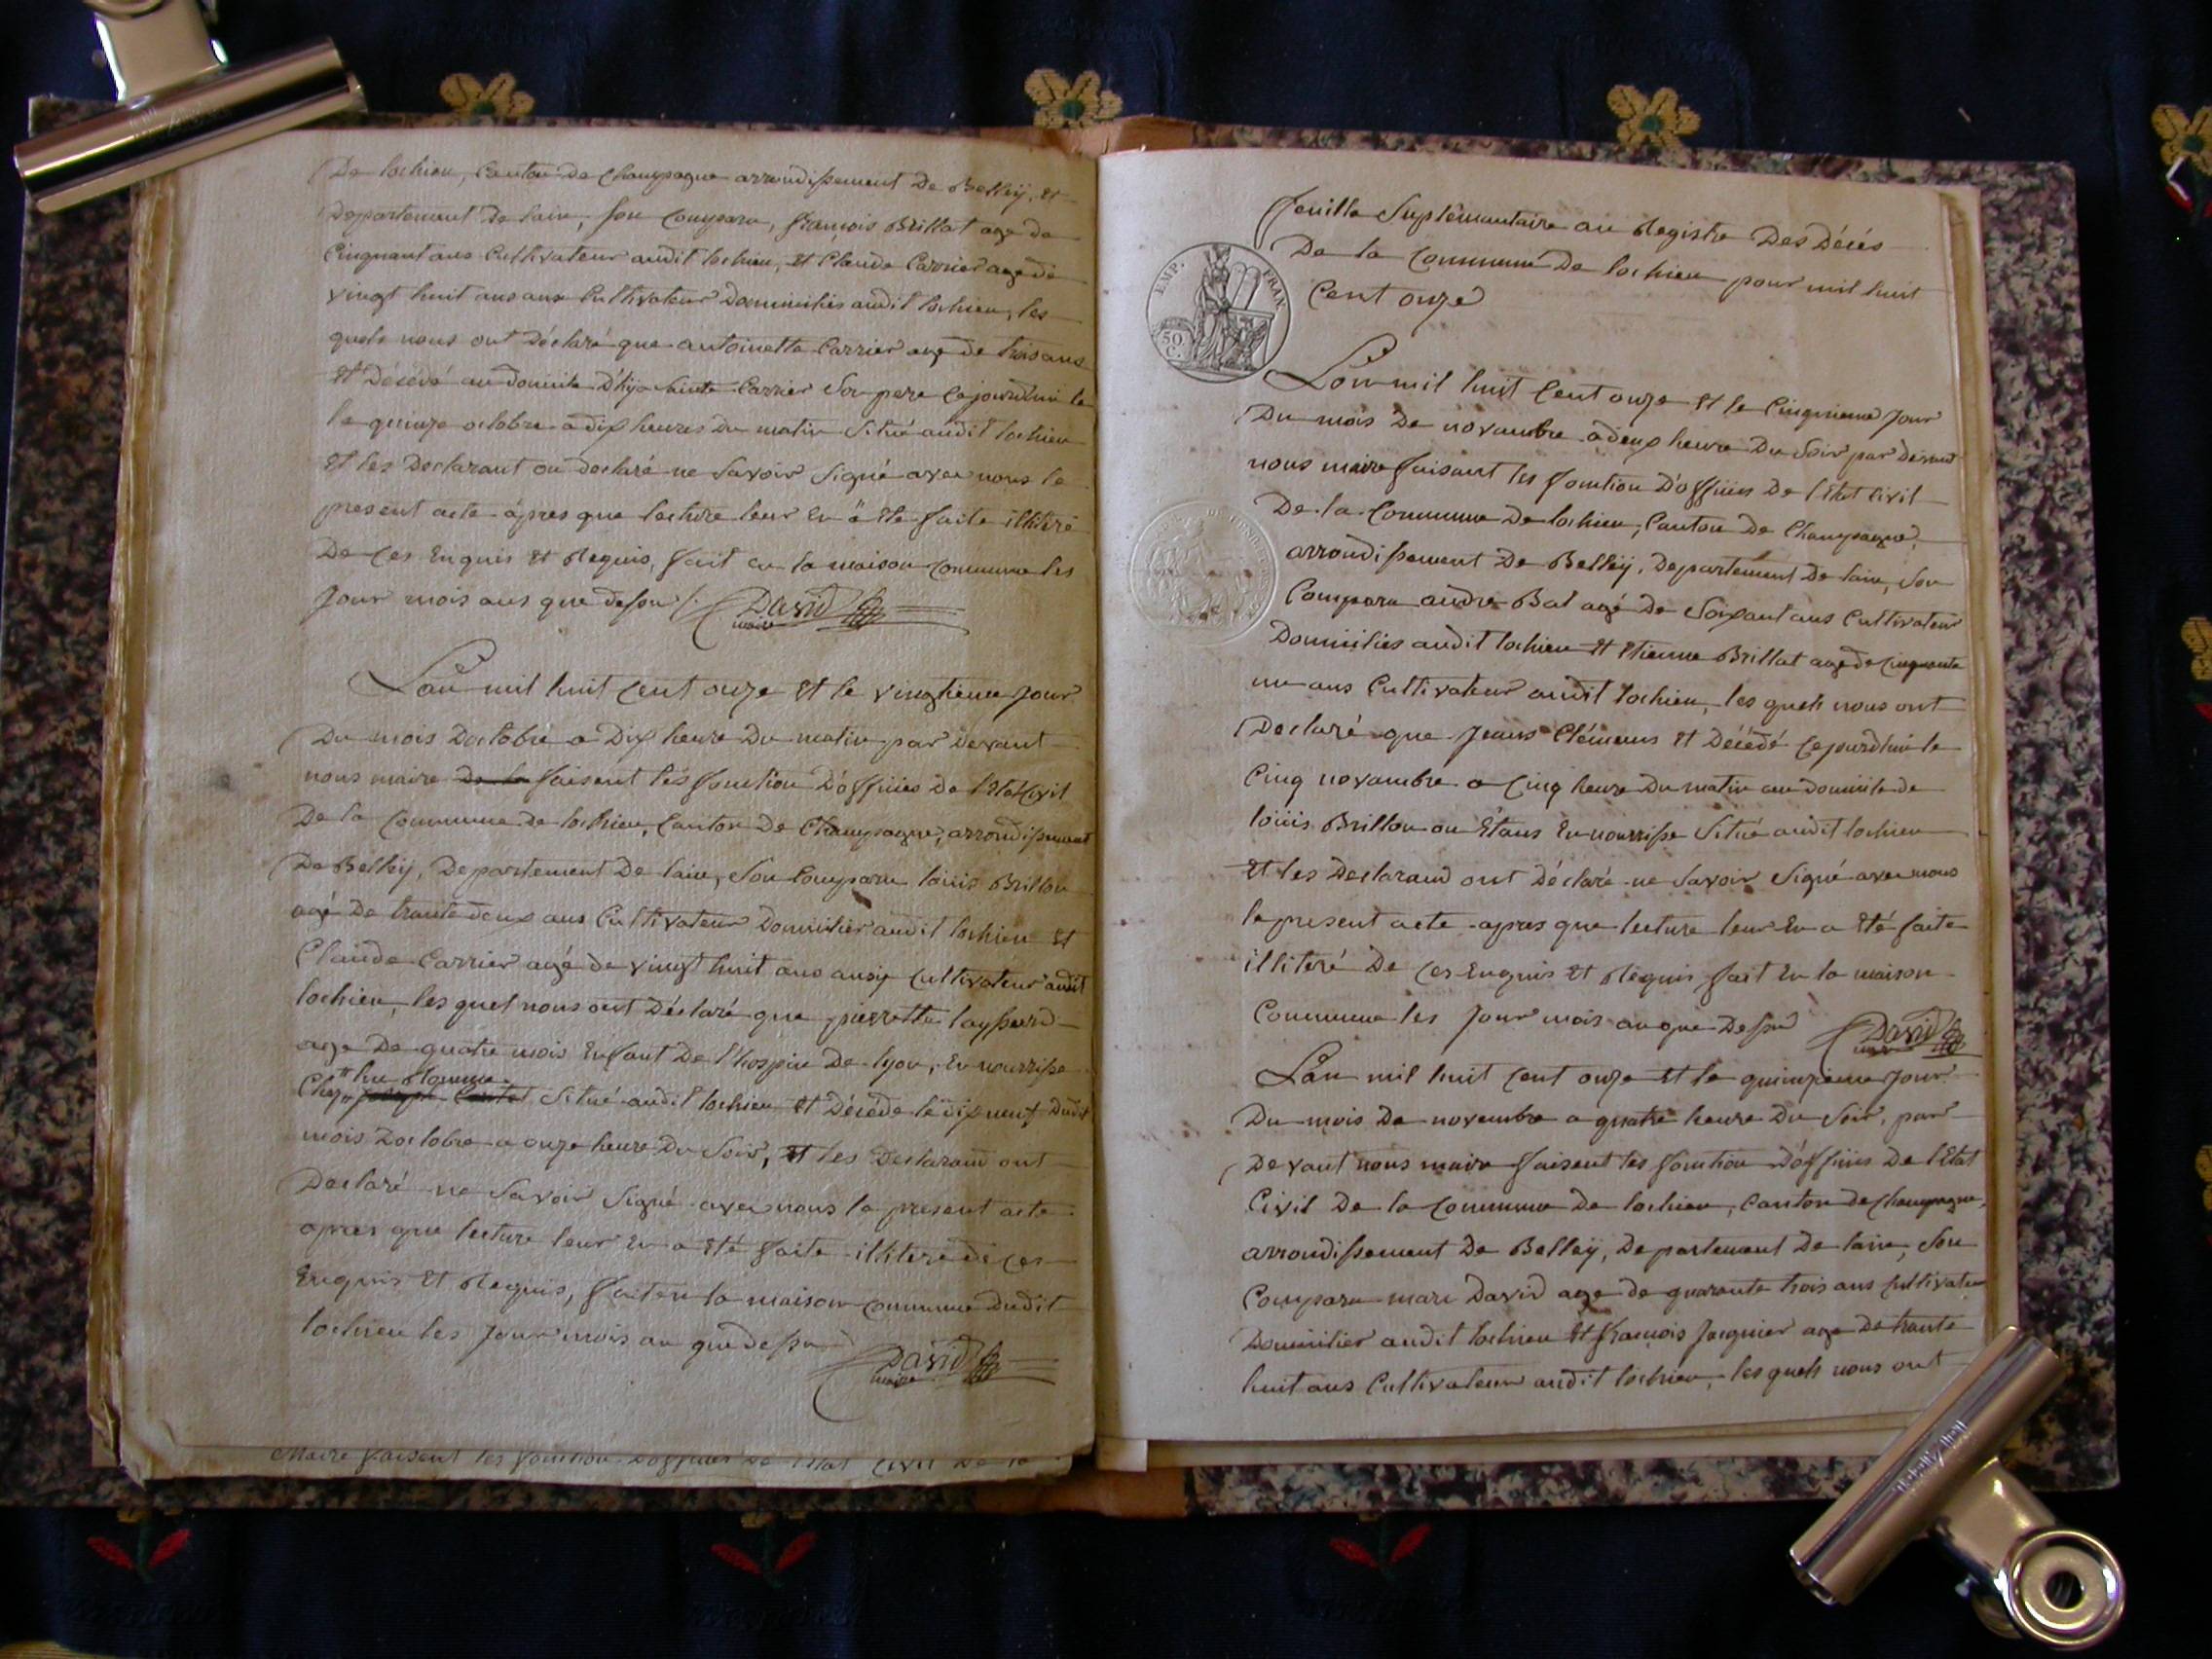 De lochieu, Canton De Champagne arrondissement De Belleÿ, Et
Departement De lain, son Comparu, françois Brillat age de
Cinquant ans Cultivateur audit lochieu, Et Claude Carrier age de
vingt huit ans aux Cultivateur Domiciliés audit lochieu, les
quels nous ont Déclaré que antoinette Carrier age de trois ans
Et Décédé au domicile Carrier Son pere Cejourdhui le
le quinze octobre a dix heures Du matin Situé audit lochieu
Et les Declarant on declaré ne Savoir Signé avec nous le
present acte âpres que lecture leur En a Ete faite illitéré
De Ces Enquis Et Requis, fait En la maison Commune les
Jour mois ans que desou /. David
maire
L'an mil huit Cent onze Et le vingtieme Jour
Du mois Doctobre a Dix heure Du matin par devant
nous maire de la faisent les fonction D'officies De l'Etat Civil
De la Commune de lochieu, Canton De Champagne, arrondissement
De Belleÿ, Departement De lain, Son Comparu loüis Brillon
agé De trante deux ans Cultivateur Domicilier audit lochieu Et
Claude Carrier agé de vingt huit ans ausy Cultivateur audit
lochieu, les quel nous ont Déclaré que pierrette
age De quatre mois Enfant De l'hospice De lyon, En nourrisse
Chez Situé audit lochieu Et Décédé le dix neuf Dudit
mois Doctobre a onze heure Du Soir, Et les Declarand ont
Declaré ne Savoir Signé avec nous le present acte
apres que lecture leur En a Eté faite illiteré de Ces
Enquis Et Requis, fait en la maison Commune Dudit
lochieu les Jour mois an que dessu David
maire
Maire faisent les fonction Dofficies De l'Etat Civil De la
feuille Suplémantaire au Registre Des Décés
De la Commune De lochieu pour mil huit
Cent onze
EMP. FRAN.
50 C.
L'an mil huit Cent onze Et le Cinquieme Jour
Du mois De novambre a deux heure Du Soir par devant
nous maire faisant les fonction D'officies De l'Etat Civil
De la Commune De lochieu, Canton De Champagne,
arrondissement De Belleÿ, Departement De lain, Son
Comparu andre Bal agé De Soixant ans Cultivateur
Domiciliés audit lochieu Et Etienne Brillat age de Cinquante
un ans Cultivateur audit lochieu, les quels nous ont
Declaré que Jeans Clémens Et Décédé Cejourdhui le
Cinq novambre a Cinq heure Du matin au domicile de
loüis Brillon ou Etans En nourrisse Situé audit lochieu
Et les Declarand ont Déclaré ne Savoir Signé avec nous
le present acte apres que lecture leur En a Eté faite
illiteré De Ces Enquis Et Requis fait En la maison
Commune les Jour mois an que Dessu David
maire
L'an mil huit Cent onze Et le quinzieme Jour
Du mois De novembre a quatre heure Du Soir, par
Devant nous maire faisent les fonction D'officies De l'Etat
Civil De la Commune De lochieu, Canton de Champagne,
arrondissement De Belleÿ, Departement De lain, Son
Comparu marc David age de quarante trois ans Cultivateur
Domicilier audit lochieu Et françois Jacquier age De trante
huit ans Cultivateur audit lochieu, les quels nous ont